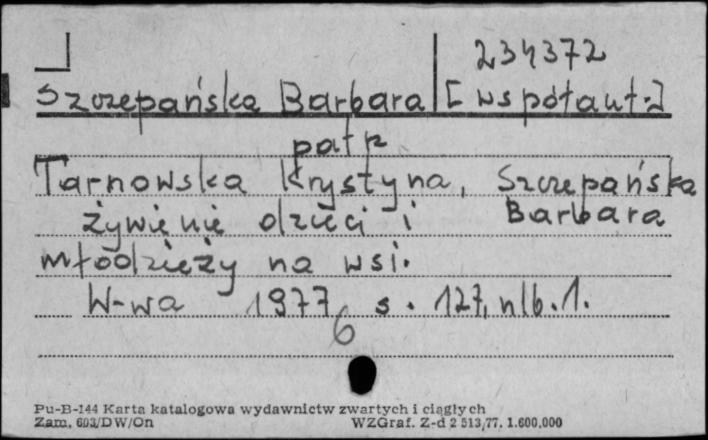 234372
Szczepańska Barbara [współaut.]
patrz
Tarnowska Krystyna, Szczepańska
Barbara
żywienie dzieci i
młodzieży na wsi.
W-wa 1977 s. 127, nlb. 1.
6
Pu-B-144 Karta katalogowa wydawnictw zwartych i ciągłych
Zam. 693/DW/On WZGraf. Z-d 2 513,77. 1.600.000